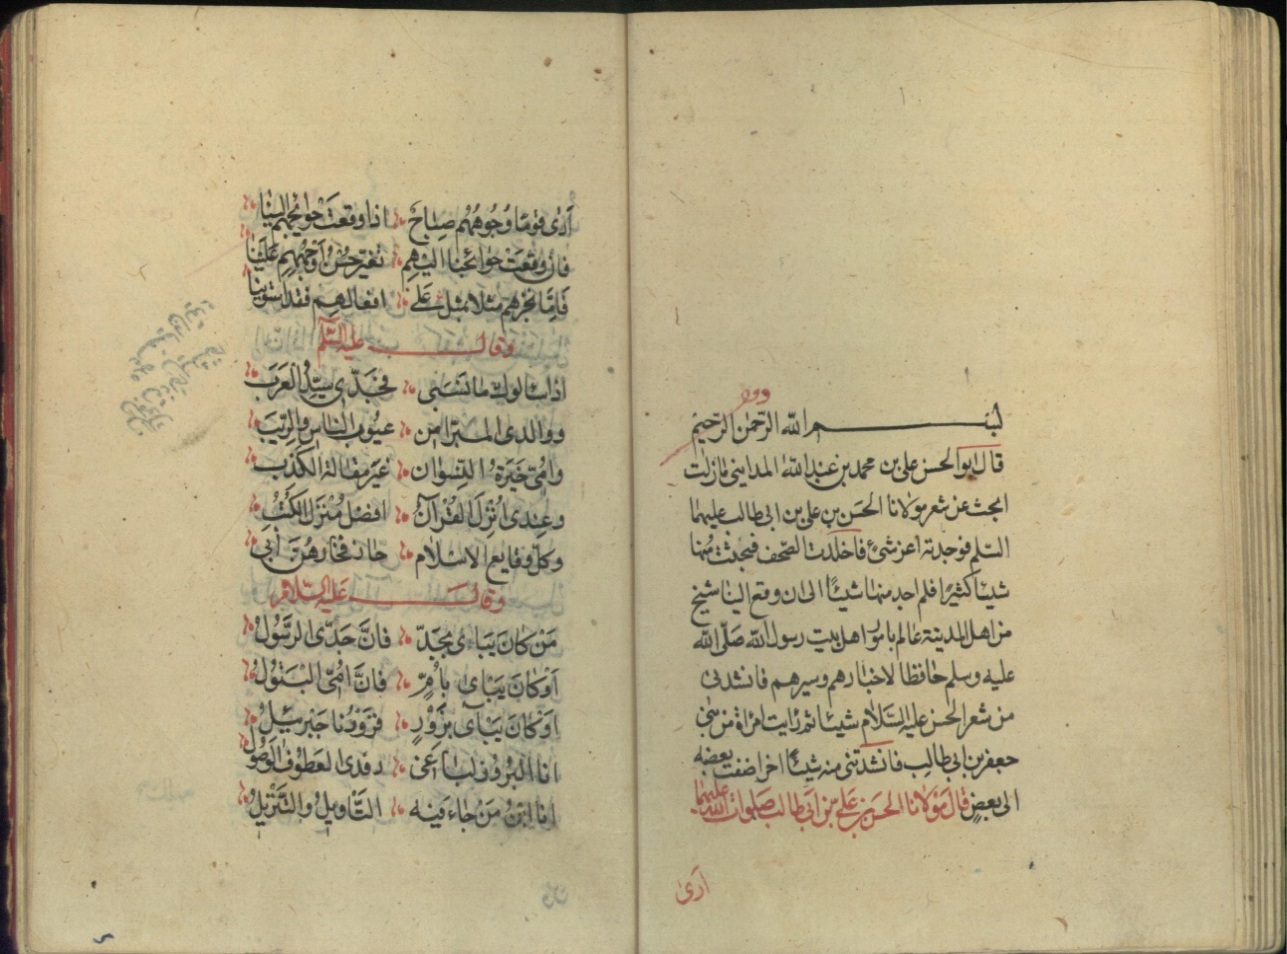 بسم الله الرحمن الرحيم
قال ابو الحسن على بن محمد بن عبد الله المداينى ما زلت
ابحث عن شعر مولانا الحسن بن على بن ابى طالب عليهما
السلم فوجدته اعز شىء فاخلدت الصحف فبحثت منها
شيئا كثيرا فلم اجد منها شيئا الى ان وقع الينا شيخ
من اهل المدينة عالم بامور اهل بيت رسول الله صلى الله
عليه وسلم حافظا لاخبارهم وسيرهم فانشدنى
من شعر الحسن عليه السلام شيئا ثم رايت امراة من بنى
جعفر بن ابى طالب فانشدتنى منه شيئا اخر اضفت بعضه
الى بعض قال مولانا الحسن بن على بن ابى طالب صلوات الله عليهما
ارى
ارى قوما وجوههم صباح اذا وقعت حوايجهم الينا
فان وقعت حوائجنا اليهم تغير حسن اوجههم علينا
فاما نجزهم مثلا بمثل على افعالهم فقد استوينا
وقال عليه السلم
اذا سالوك ما نسبى فجدى سيد العرب
ووالدى المبرا من عيوب الناس والريب
وامى خيرة النسوان غير مقالة الكذب
وعندى انزل القرآن افضل منزل الكتب
وكل وقايع الاسلام حاز فخارهن ابى
وقال عليه السلام
من كان يباى بجد فان جدى الرسول
او كان يباى بام فان امى البتول
او كان يباى بزور فزورنا جبرئيل
انا البرور لباعى
انا ابن من جاء فيه التاويل والتنزيل